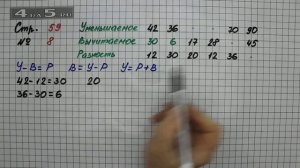 4 АПБ
Стр. 59 Уменьшаемое 42 36 70 90
№ 8 Вычитаемое 30 6 17 28 45
Разность 12 30 20 12 36
У-В=Р В=У-Р У=Р+В
42-12=30 20
36-30=6